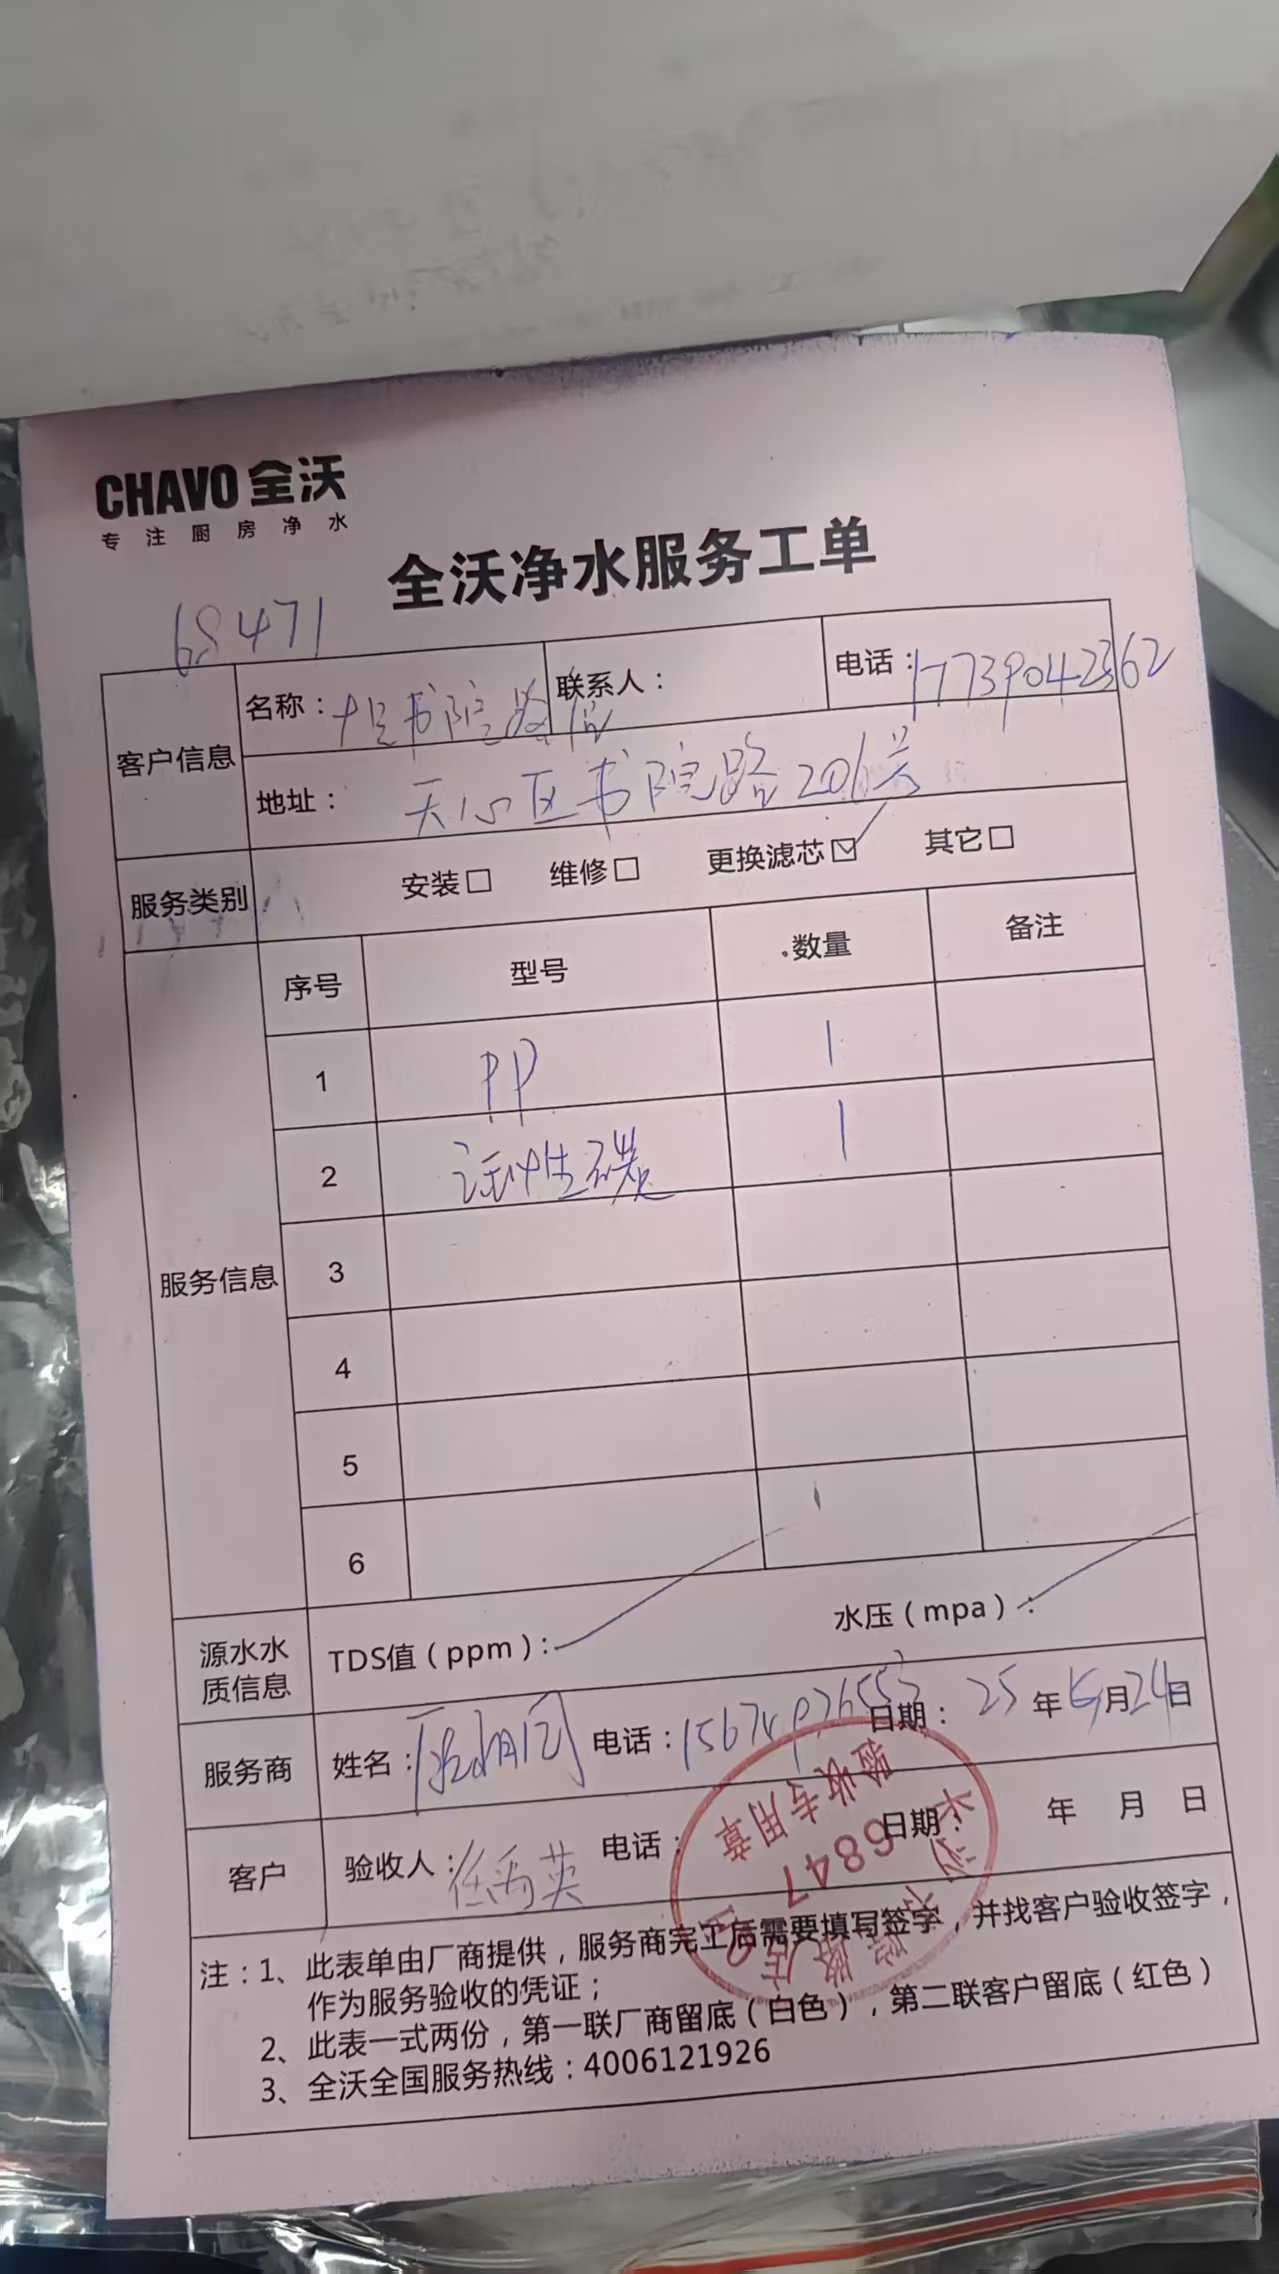 CHAVO 全沃
专注厨房净水
全沃净水服务工单
68471
客户信息
名称： 书院路店 联系人： 电话：17739042362
地址： 天心区书院路206号
服务类别 安装□ 维修□ 更换滤芯☑ 其它□
服务信息
序号 型号 数量 备注
1 PP 1
2 活性碳 1
3
4
5
6
源水水质信息 TDS值（ppm）： 水压（mpa）：
服务商 姓名： 电话： 日期：25年5月24日
客户 验收人： 电话： 日期： 年 月 日
验收专用章
6847
注：1、此表单由厂商提供，服务商完工后需要填写签字，并找客户验收签字，
作为服务验收的凭证；
2、此表一式两份，第一联厂商留底（白色），第二联客户留底（红色）
3、全沃全国服务热线：4006121926